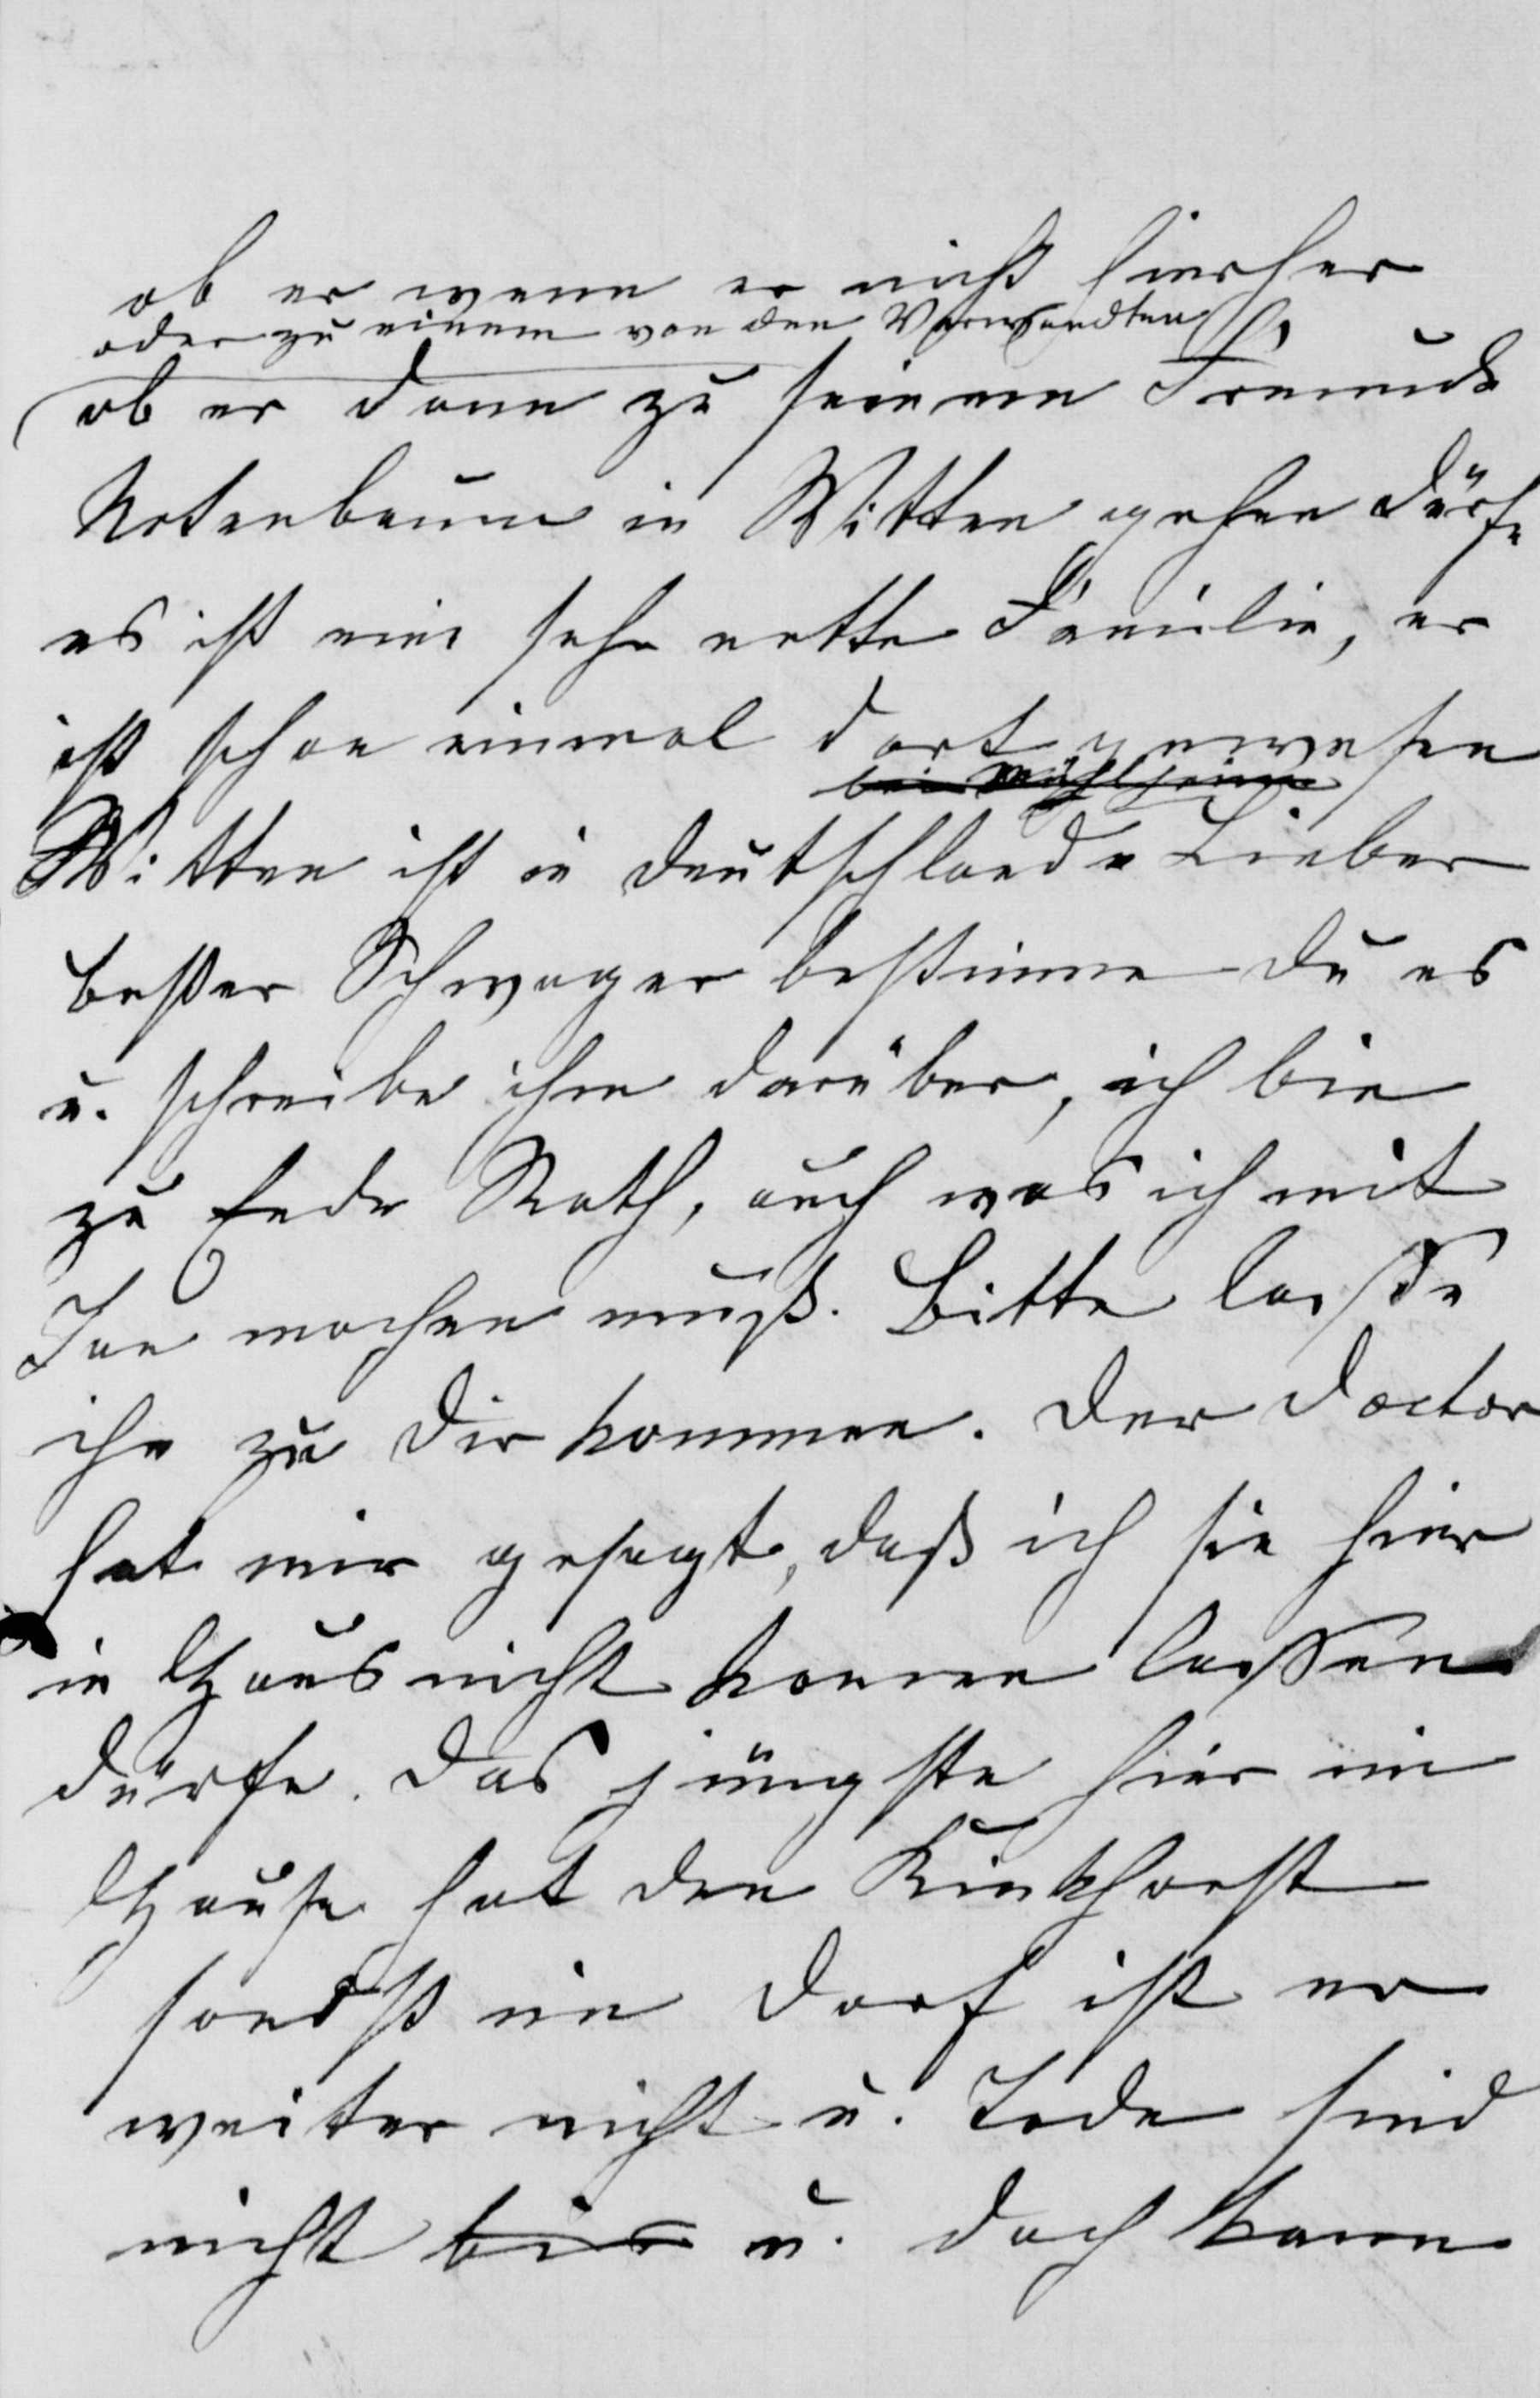 ob er wenn er nicht hierher
oder zu einem von den Verwandten
ob er dann zu seinem Freunde
Notenbaum in Witten gehen dürfe
es ist eine sehr nette Familie, er
ist schon einmal dort gewesen
bei Mühlheim
Witten ist in Deutschland. Lieber
bester Schwager bestimme Du es
u. schreibe ihm darüber, ich bin
zu Ende Rath, auch was ich mit
Jan machen muß. Bitte lasse
ihn zu Dir kommen. Der Doctor
hat mir gesagt, daß ich sie hier
in Haus nicht komen lassen
dürfe. Das jüngste hier im
Hause hat den Kinkhorst
sonst im Dorf ist er
weiter nicht u. Jede sind
nicht bis u. doch kann